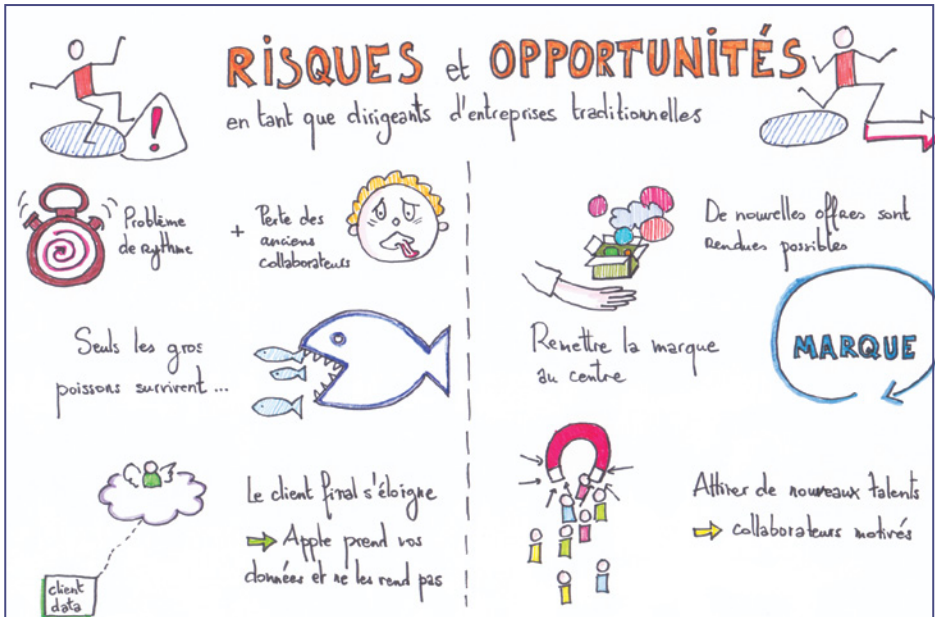 RISQUES et OPPORTUNITÉS
en tant que dirigeants d'entreprises traditionnelles
!
Problème
de rythme
+
Perte des
anciens
collaborateurs
Seuls les gros
poissons survivront ...
Le client final s'éloigne
⇒ Apple prend vos
données et ne les rend pas
client
data
De nouvelles offres sont
rendues possibles
Remettre la marque
au centre
MARQUE
Attirer de nouveaux talents
⇒ collaborateurs motivés